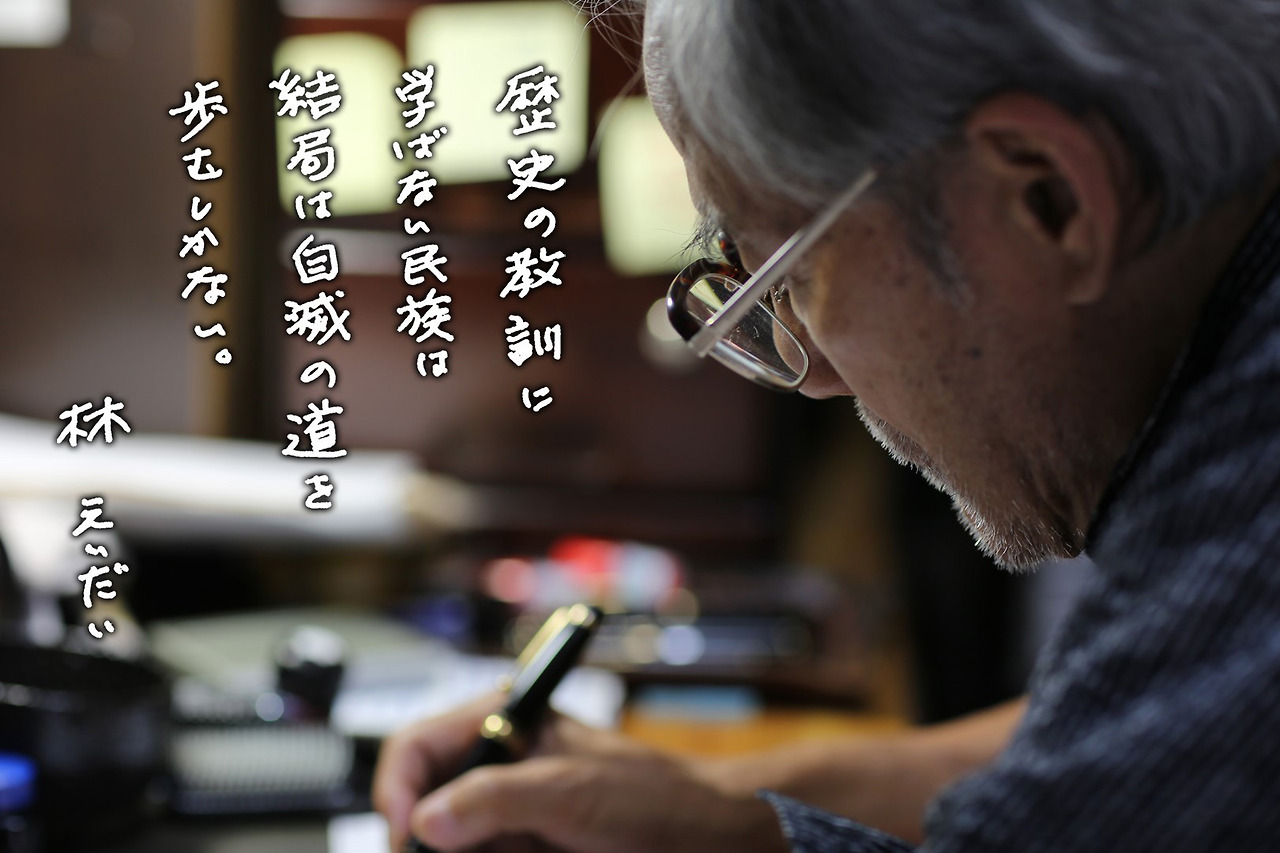 歴史の教訓に
学ばない民族は
結局は自滅の道を
歩むしかない。
林 えいだい